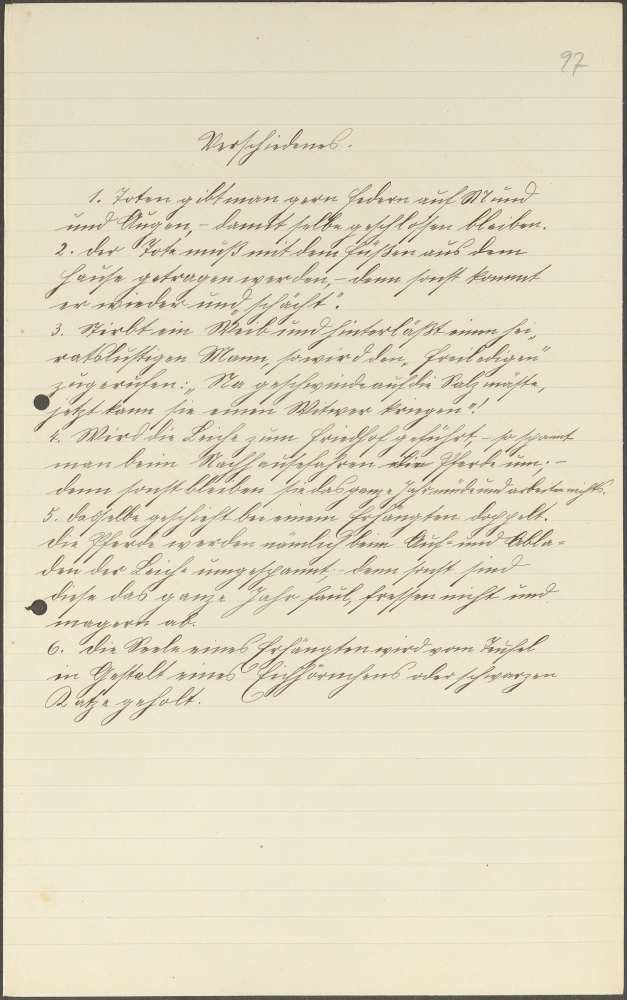 97
Verschiedenes.
1. Toten gibt man gern Federn auf Mund
und Augen, – damit selbe geschlossen bleiben.
2. Der Tote muß mit den Füßen aus dem
Hause getragen werden, – denn sonst kommt
er wieder und „schächt".
3. Stirbt ein Weib und hinterläßt einen hei„
ratslustigen Mann, so wird den „Freiledigen"
zugerufen: „Na geschwinde auf die Salzmäste,
jetzt kann sie einen Witwer kriegen"!
4. Wird die Leiche zum Friedhof geführt, – so spannt
man beim Nachhausefahren die Pferde um; –
denn sonst bleiben sie das ganze Jahr müde und arbeiten nichts.
5. Dasselbe geschieht bei einem Erhängten doppelt.
Die Pferde werden nämlich beim Auf- und Abla-
den der Leiche umgespannt – denn sonst sind
diese das ganze Jahr faul, fressen nicht und
magern ab.
6. Die Seele eines Erhängten wird vom Teufel
in Gestalt eines Eichhörnchens oder schwarzen
Katze geholt.